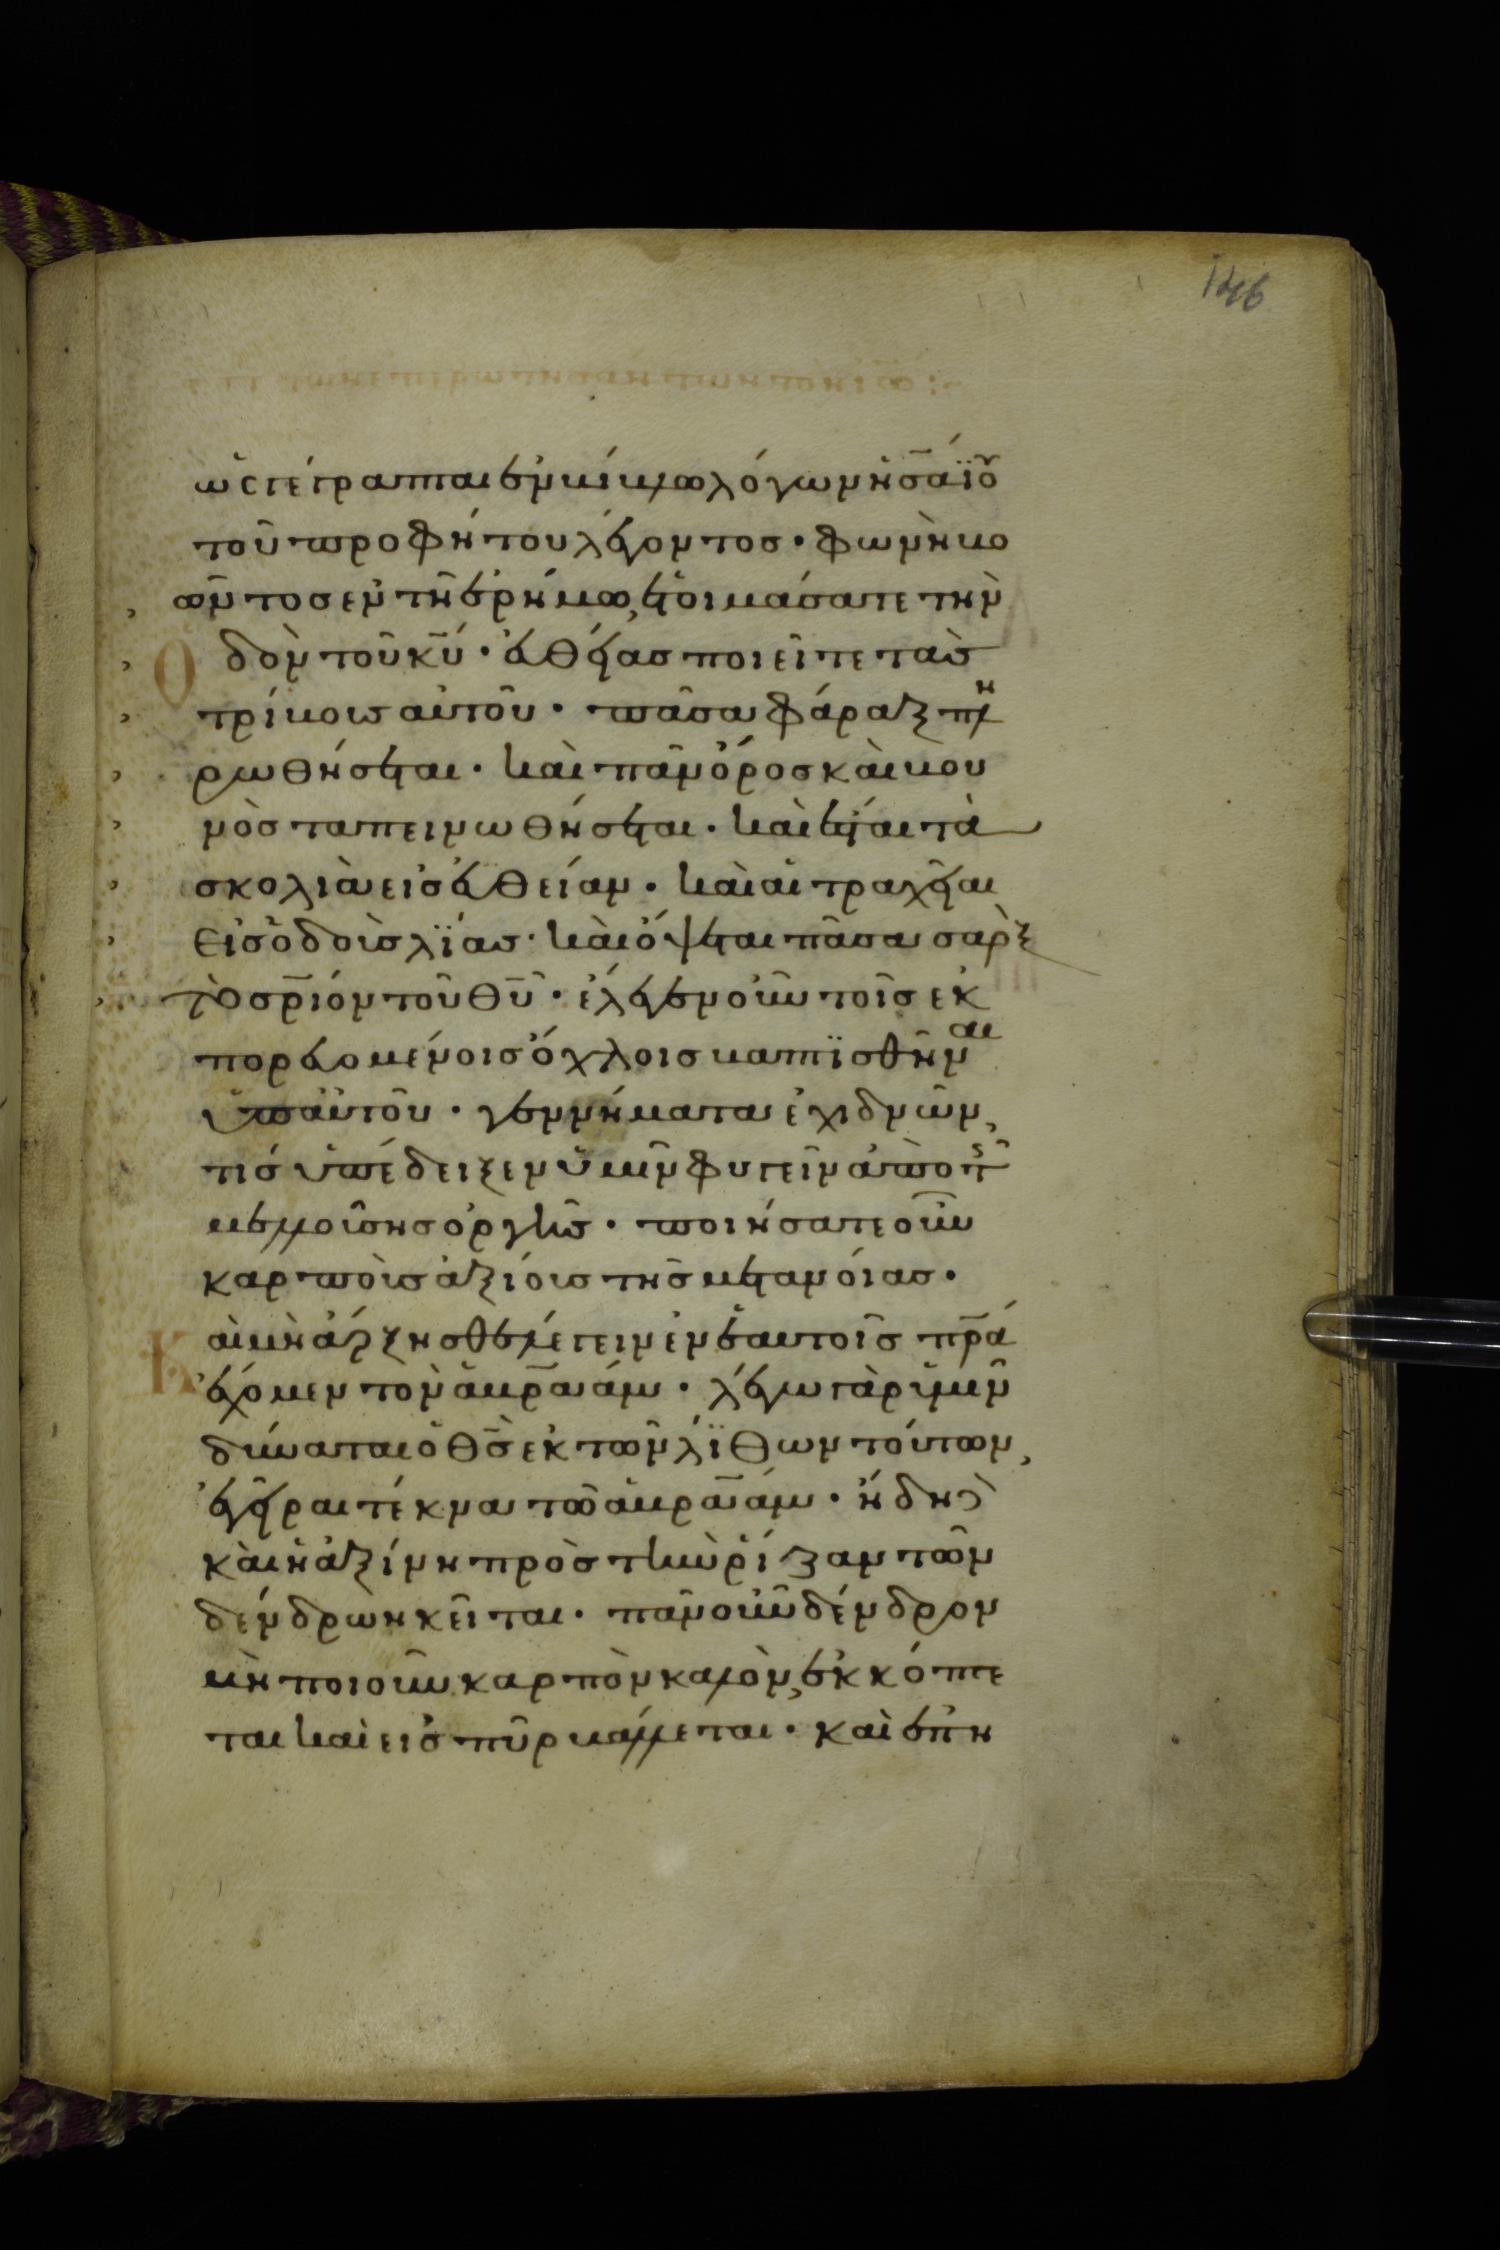 146
ὡς γέγραπται ἐν βίβλω λόγων ἡσαΐου
τοῦ προφήτου λέγοντος· φωνὴ βο
ῶντος ἐν τῆ ἐρήμω, ἑτοιμάσατε τὴν
ὁδὸν τοῦ κ̅υ̅· εὐθείας ποιεῖτε τὰς
τρίβους αὐτοῦ· πᾶσα φάραξ πλη
ρωθήσεται· καὶ πᾶν ὄρος καὶ βου
νὸς ταπεινωθήσεται· καὶ ἔσται τὰ
σκολιὰ εἰς εὐθείαν· καὶ αἱ τραχεῖαι
εἰς ὁδοὺς λΐας· καὶ ὄψεται πᾶσα σὰρξ
τὸ σ̅ρ̅ιόν τοῦ θ̅υ̅· ἔλεγεν οὖν τοῖς ἐκ
πορευομένοις ὄχλοις βαπτϊσθῆναι
ὑπ αὐτοῦ· γεννήματα ἐχιδνῶν,
τίς ὑπέδειξεν ὑμῖν φυγεῖν ἀπὸ τῆς
μελλούσης ὀργῆς· ποιήσατε οὖν
καρποὺς ἀξίους τῆς μετανοίας·
Καὶ μὴ ἄρξησθε λέγειν ἐν ἑαυτοῖς π̅ρ̅α
ἔχομεν τὸν ἀβραάμ· λέγω γὰρ ὑμῖν
δύναται ὁ θ̅ς̅ ἐκ τῶν λίθων τούτων,
ἐγεῖραι τέκνα τῶ ἀβραάμ· ἤδη δὲ
καὶ ἡ ἀξίνη πρὸς τὴν ῥίζαν τῶν
δένδρων κεῖται· πᾶν οὖν δένδρον
μὴ ποιοῦν καρπὸν καλὸν, ἐκκόπτε
ται καὶ εἰς πῦρ βάλλεται· καὶ ἐπη